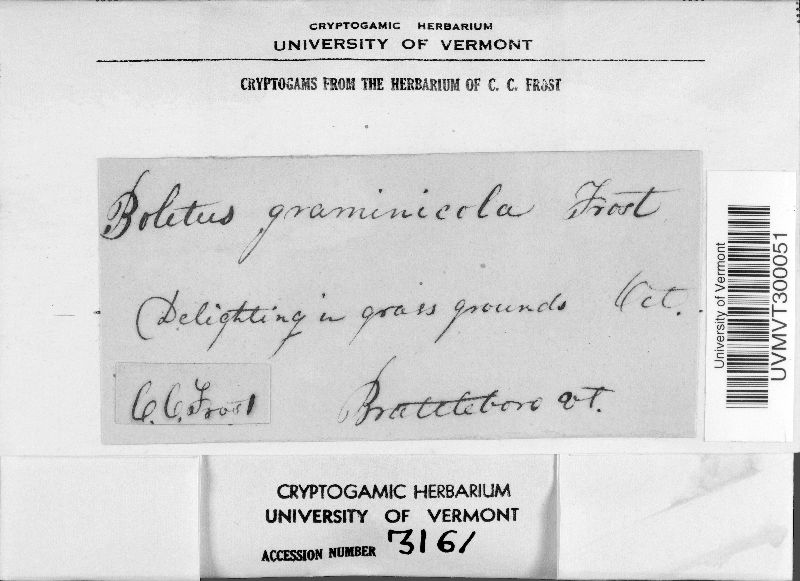 CRYPTOGAMIC HERBARIUM
UNIVERSITY OF VERMONT
CRYPTOGAMS FROM THE HERBARIUM OF C. C. FROST
Boletus graminicola Frost
Delighting in grass grounds Oct.
C. C. Frost
Brattleboro Vt.
University of Vermont
UVMVT300051
CRYPTOGAMIC HERBARIUM
UNIVERSITY OF VERMONT
ACCESSION NUMBER 3161